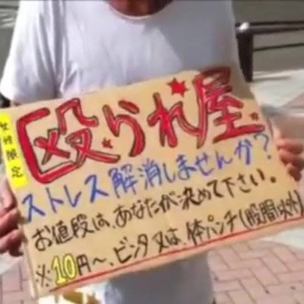 女性限定
殴られ屋
ストレス解消しませんか?
お値段は、あなたが決めて下さい。
※10円〜、ビンタ又は、体パンチ(股間以外)